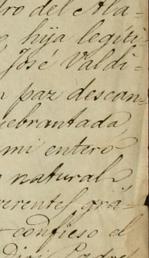 ro del Ala-
hija legiti-
José Valdi-
paz descan-
ebrantada,
mi entero
natural
erentes grá-
confieso el
Dios Padre